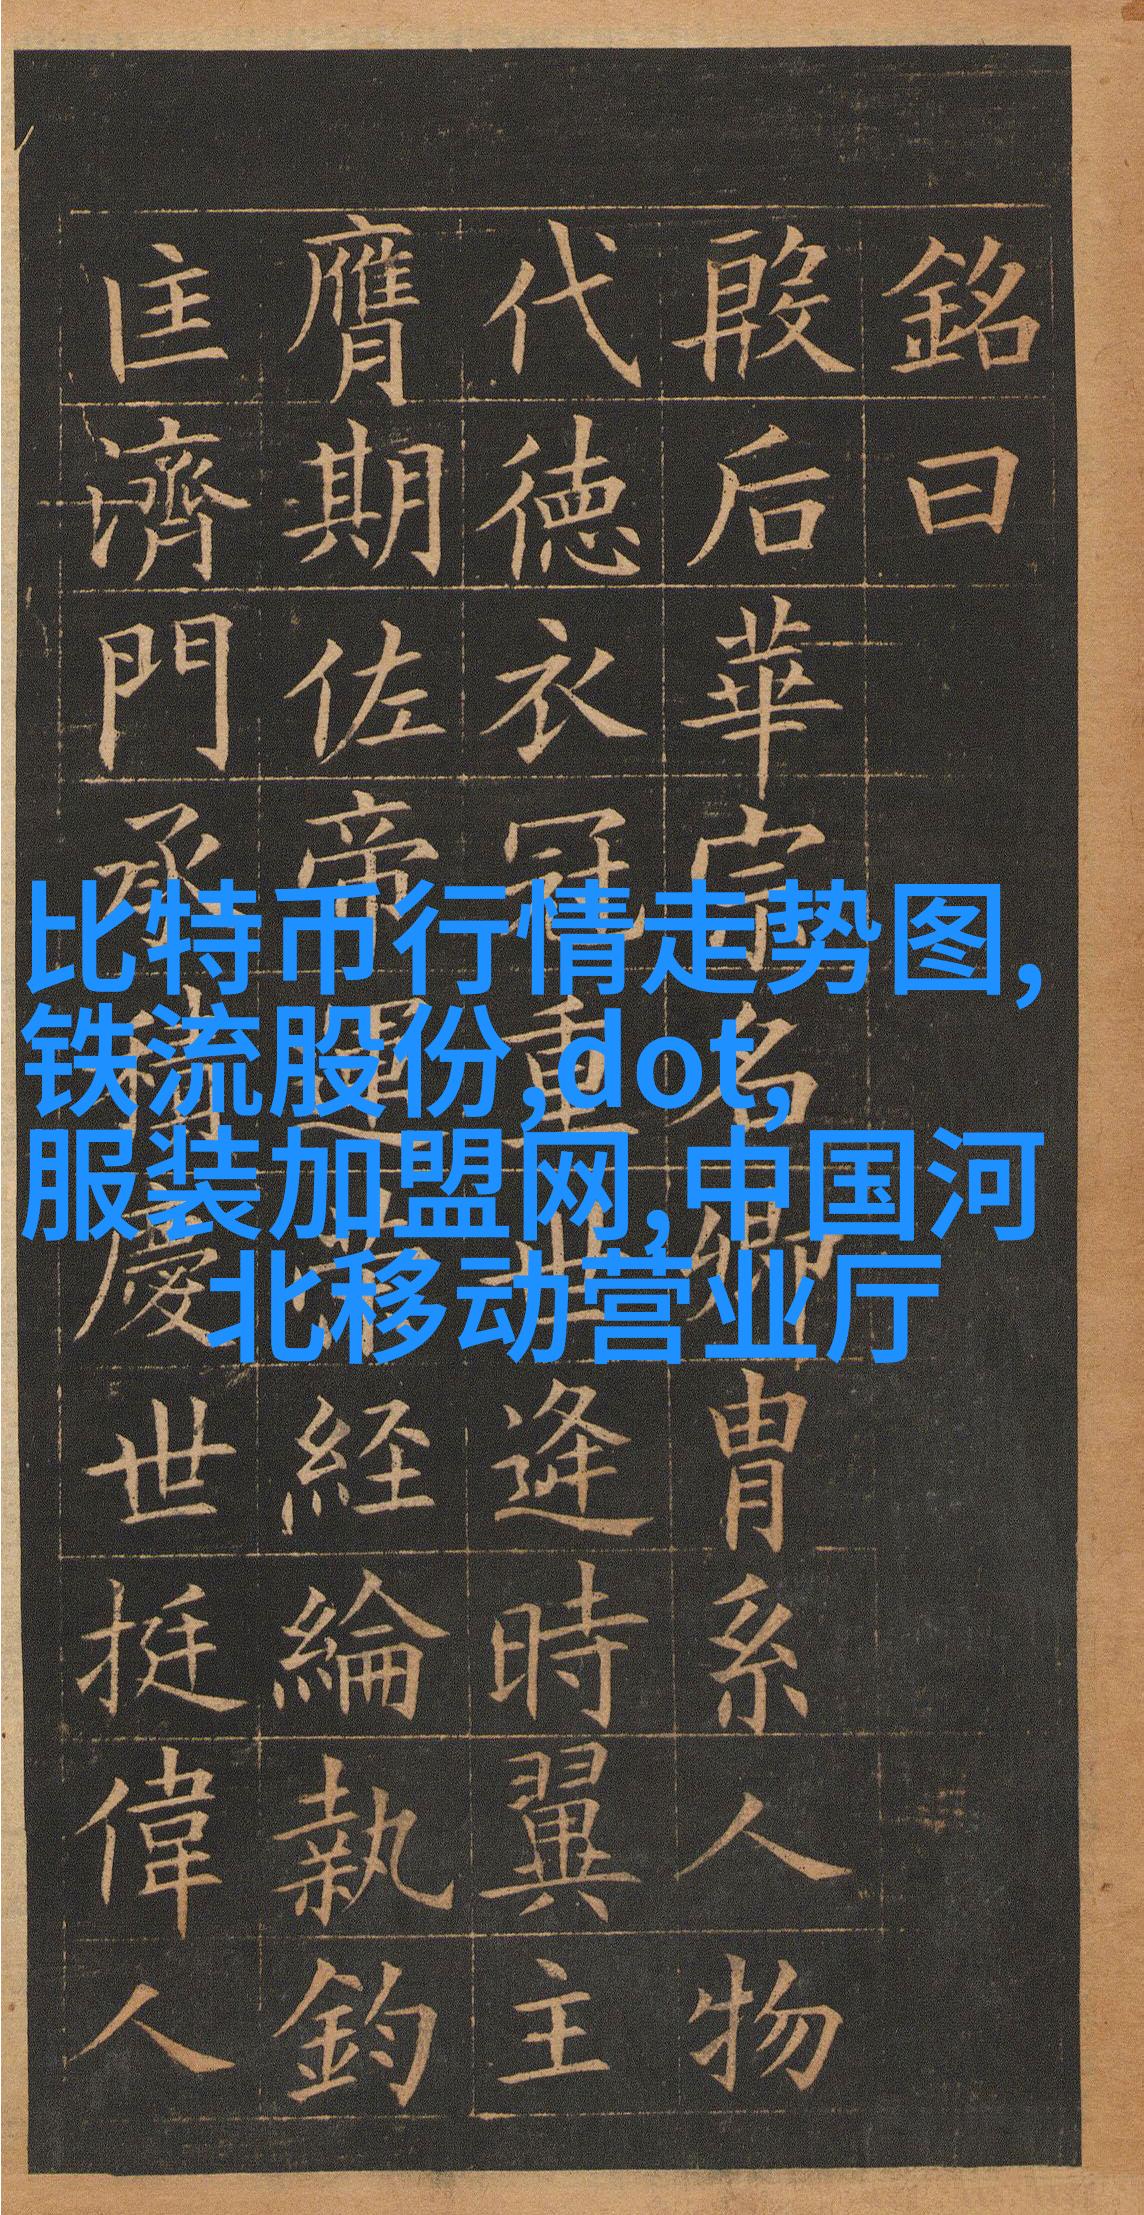 銘曰
殷后華宗名卿胄系人物
代德衣冠重世逢時翼主
膺期佐帝運策経綸執鈞
匡濟門承積慶世挺偉人
比特币行情走势图,
铁流股份,dot,
服装加盟网,中国河
北移动营业厅